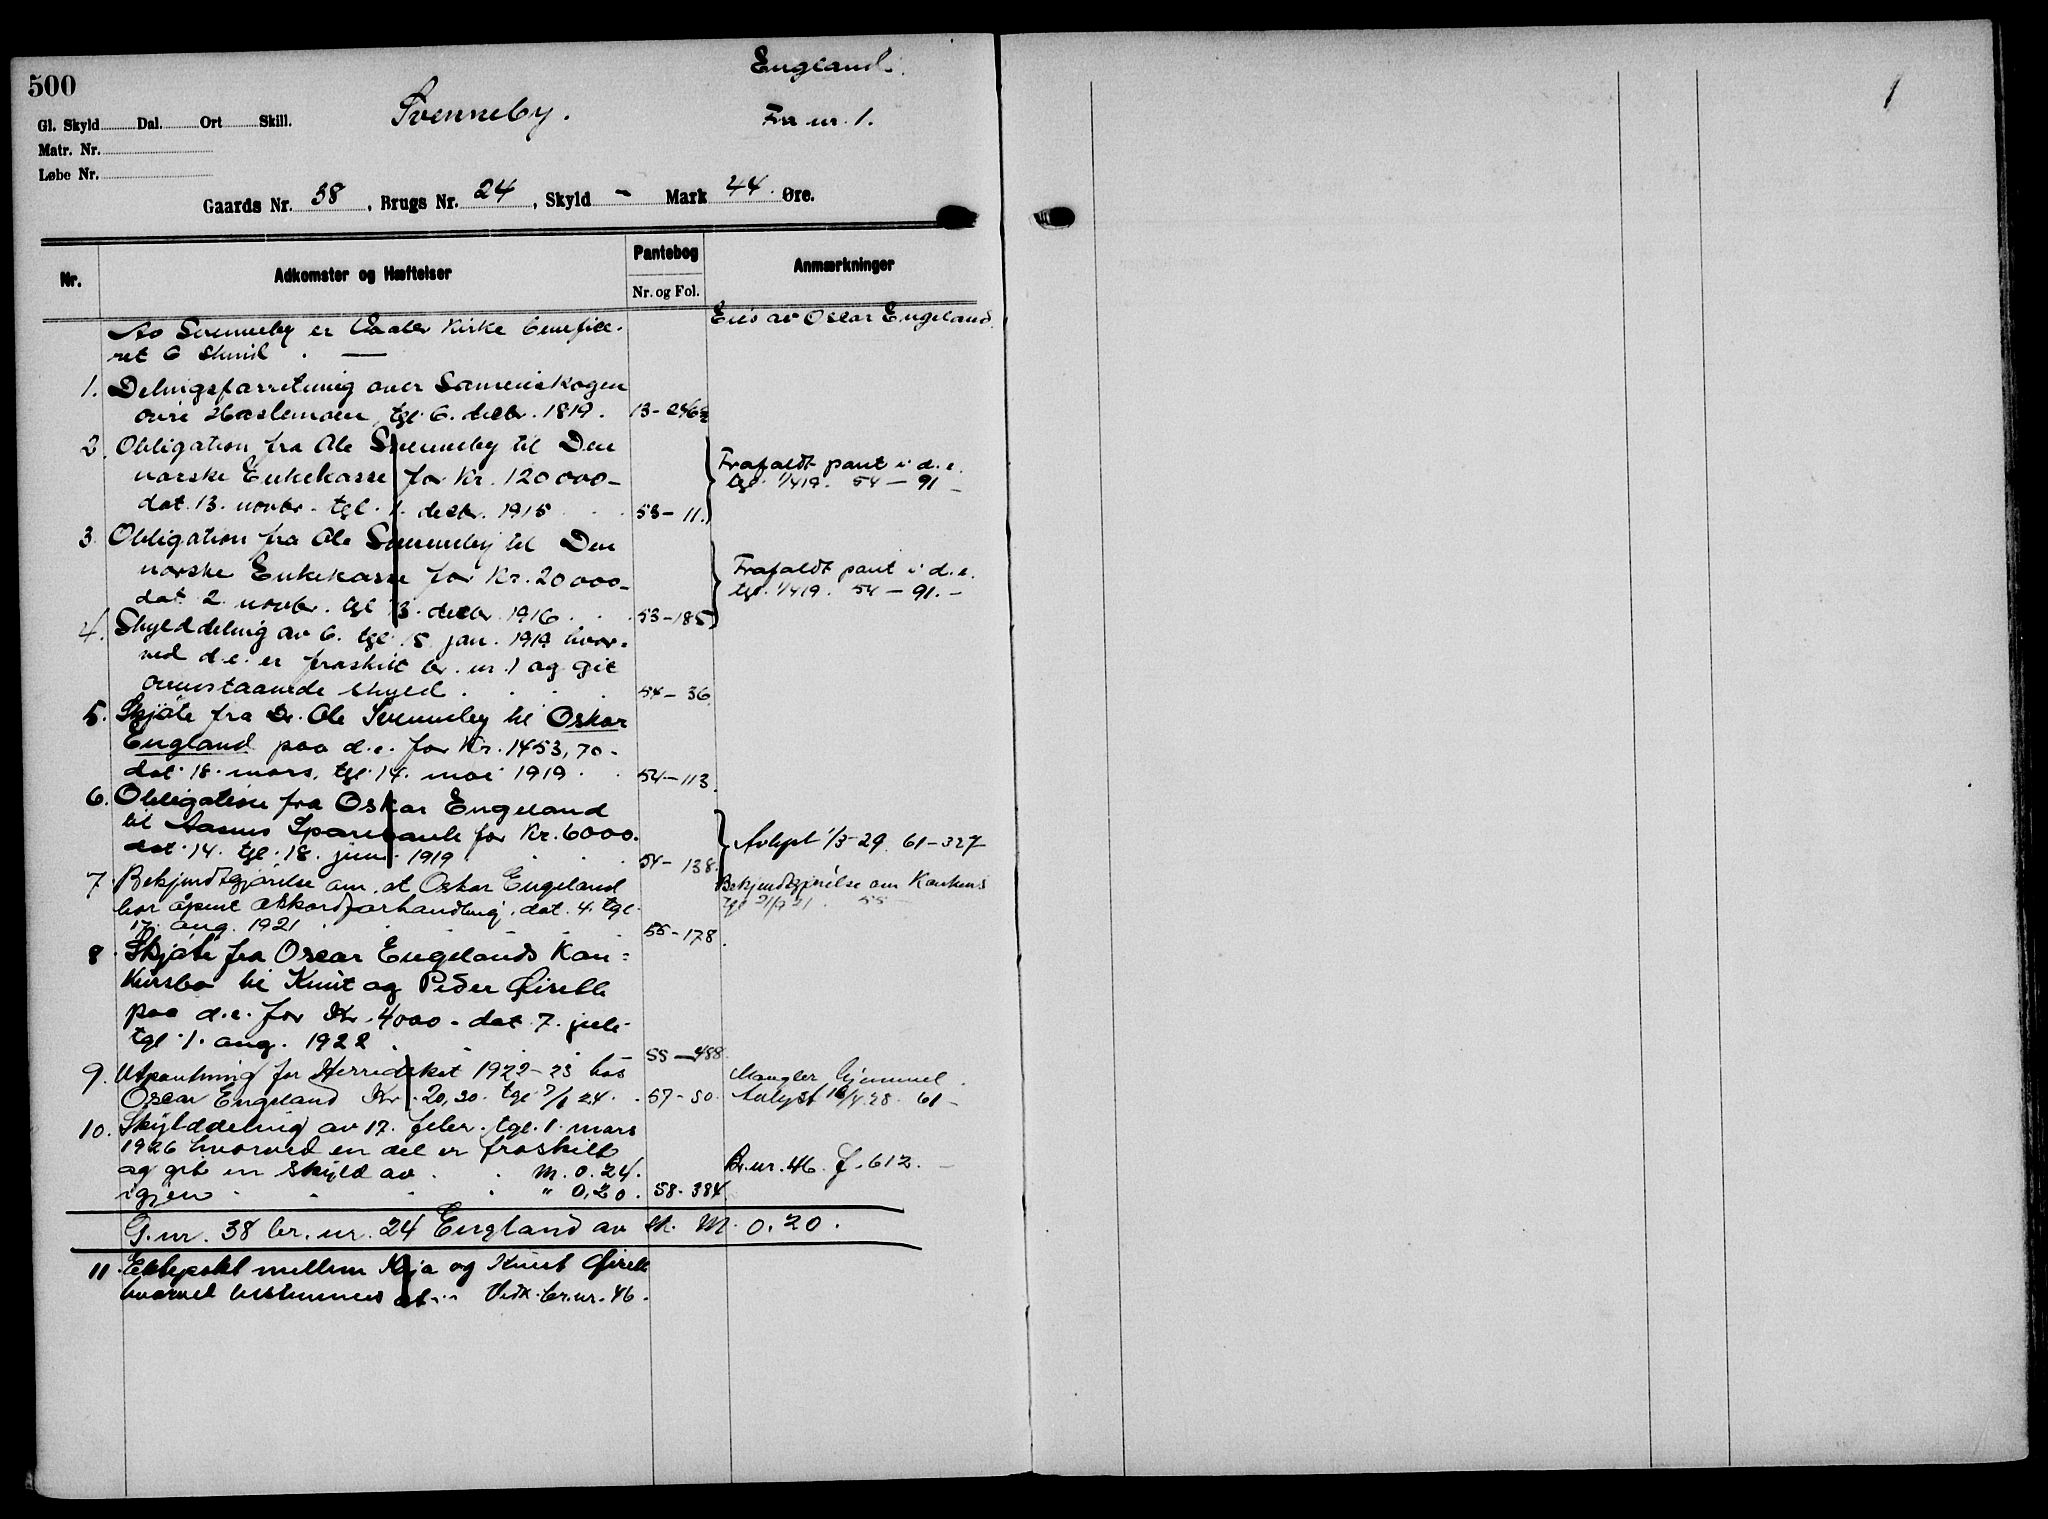 500
Engeland.
Svenneby.
Fra nr. 1.
Gl. Skyld Dal. Ort Skill.
Matr. Nr.
Løbe Nr.
Gaards Nr. 38, Brugs Nr. 24, Skyld - Mark 44. Øre.
1
Nr. Adkomster og Hæftelser Pantebog Anmærkninger
Nr. og Fol.
Eies av Oscar Engeland.
Av Svenneby er Vaaler Kirke benefice-
ret 6 skind. —
1. Delingsforretning over Sameieskogen
øvre Haslemoen, tgl. 6. decbr. 1819. 13-246
2. Obligation fra Ole Svenneby til Den
norske Enkekasse for Kr. 120000-
dat. 13. novbr. tgl. 1. decbr. 1915 53-11.
Frafaldt pant i d.e.
tgl. 1/4 19. 54-91-
3. Obligation fra Ole Svenneby til Den
norske Enkekasse for Kr. 20000-
dat. 2. novbr. tgl. 13. decbr. 1916 53-185
Frafaldt pant i d.e.
tgl. 1/4 19. 54-91.-
4. Skylddeling av 6. tgl. 15. jan. 1919 hvor-
ved d.e. er fraskilt br. nr. 1 og git
ovenstaaende skyld. 54-36.
5. Skjøte fra Ole Svenneby til Oskar
England paa d.e. for Kr. 1453,70-
dat. 18. mars. tgl. 14. mai 1919. 54-113.
6. Obligation fra Oskar Engeland
til Aasnes Sparebank for Kr. 6000.
dat. 14. tgl. 18. juni 1919 54-138.
Avlyst 1/3-29. 61-327
7. Bekjendtgjørelse om at Oskar Engeland
har åpent akkordforhandling. dat. 4. tgl.
17. aug. 1921 55-178.
Bekjendtgjørelse om Konkurs
tgl. 21/9 21. 55-
8. Skjøte fra Oscar Engelands Kon-
kursbo til Knut og Peder Øiseth
paa d.e. for Kr. 4000- dat. 7. juli
tgl. 1. aug. 1922 55-488.
9. Utpantning for Herredskat 1922-23 hos
Oscar Engeland Kr. 20,30. tgl. 7/1 24. 57-50.
Mangler hjemmel.
Avlyst 16/4.28. 61-
10. Skylddeling av 17. febr. tgl. 1. mars
1926 hvorved en del er fraskilt
og git en skyld av M. 0.24.
igjen " 0,20. 58-384.
Br. nr. 46. f. 612.-
G. nr. 38 br. nr. 24 England av sk. M. 0.20.
11. Ektepakt mellem Kaja og Knut Øiseth
hvorved bestemmes at... Vedk. br. nr. 46.